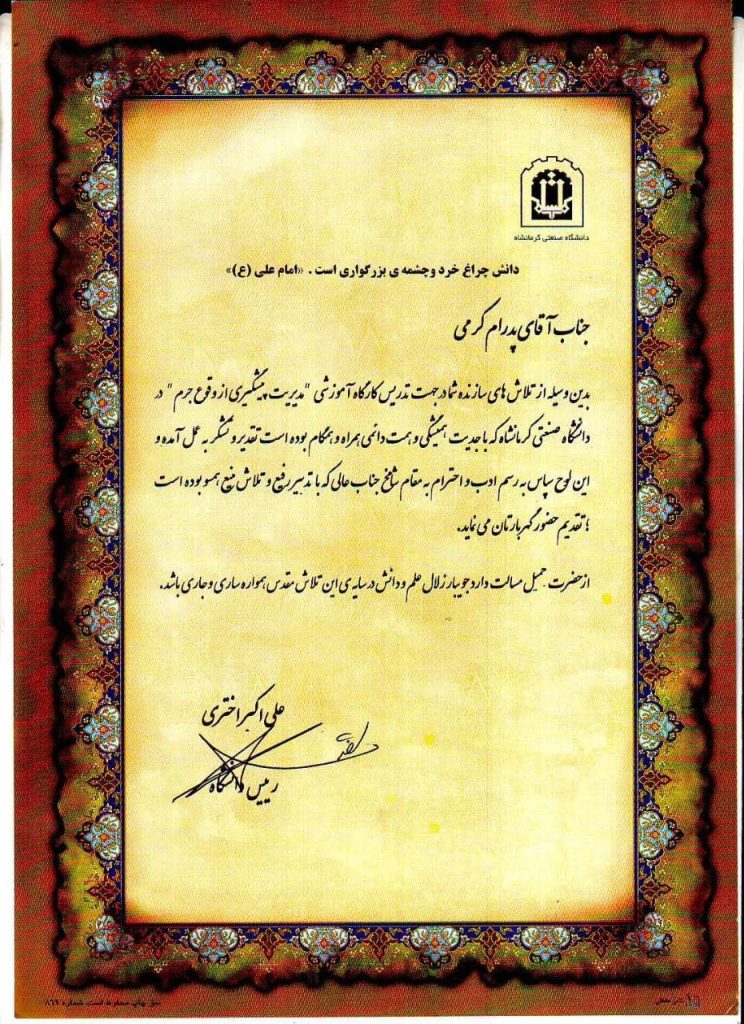 دانشگاه صنعتی کرمانشاه
دانش چراغ خرد وچشمه ی بزرگواری است . «امام علی (ع)»
جناب آقای پدرام کرمی
بدین وسیله از تلاش های سازنده شما در جهت تدریس کارگاه آموزشی "مدیریت پیشگیری از وقوع جرم" در
دانشگاه صنعتی کرمانشاه که با جدیت همیشگی و همت دائمی همراه و همگام بوده است تقدیر و تشکر به عمل آمده و
این لوح سپاس به رسم ادب و احترام به مقام شامخ جناب عالی که با تدبیر رفیع و تلاش منیع همسو بوده است
؛ تقدیم حضور گهربارتان می نماید.
از حضرت جمیل مسالت دارد جویبار زلال علم و دانش در سایه ی این تلاش مقدس همواره ساری و جاری باشد.
علی اکبر اختری
رییس دانشگاه
حق چاپ محفوظ است شماره ۸۶۹